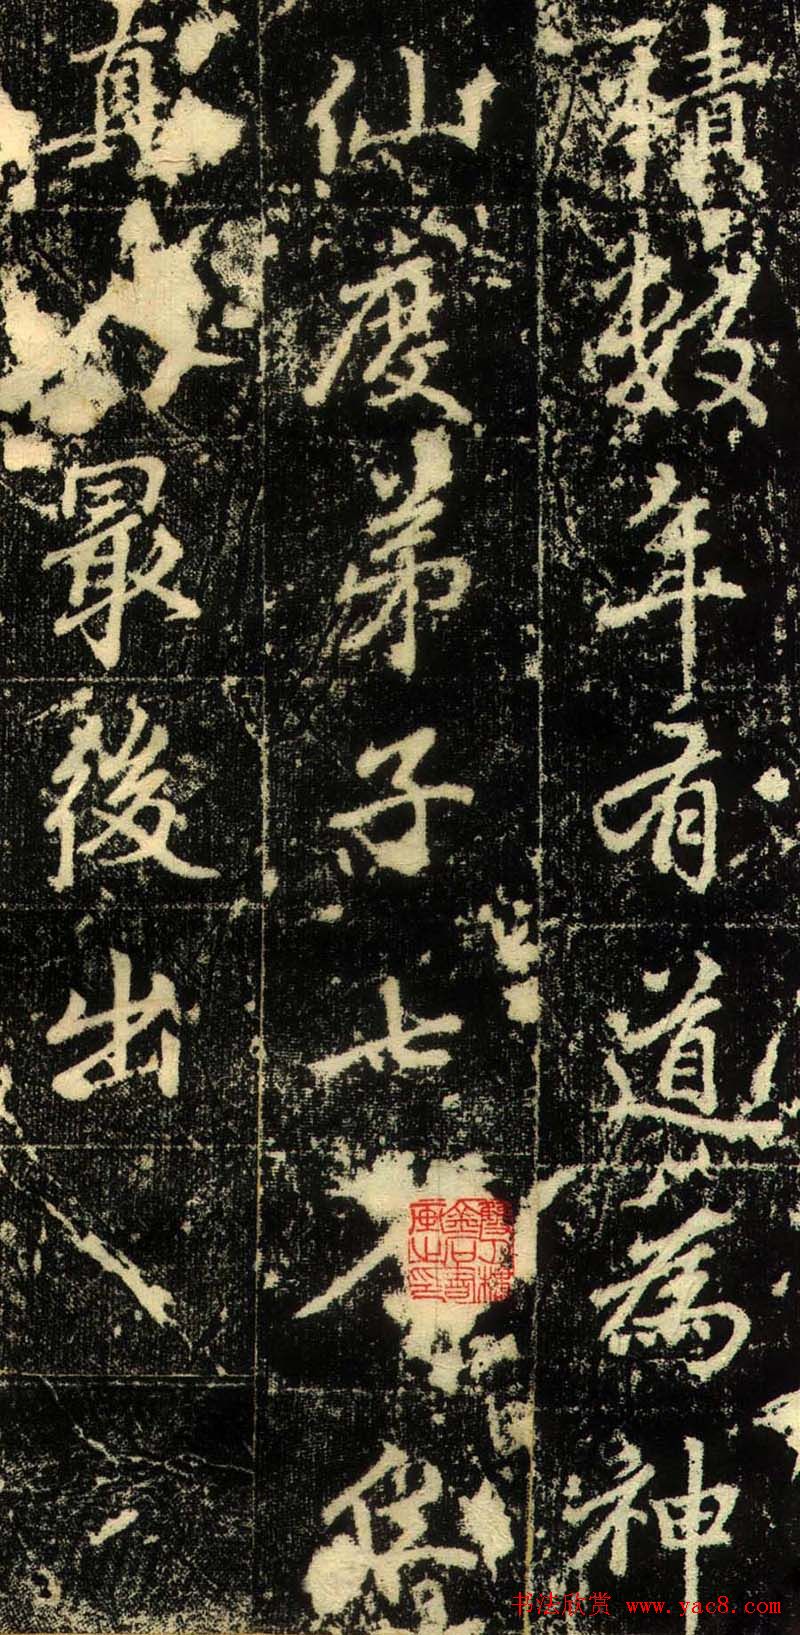 積數年有道為神
仙度弟子七人
真人最後出
书法欣赏 www.yac8.com